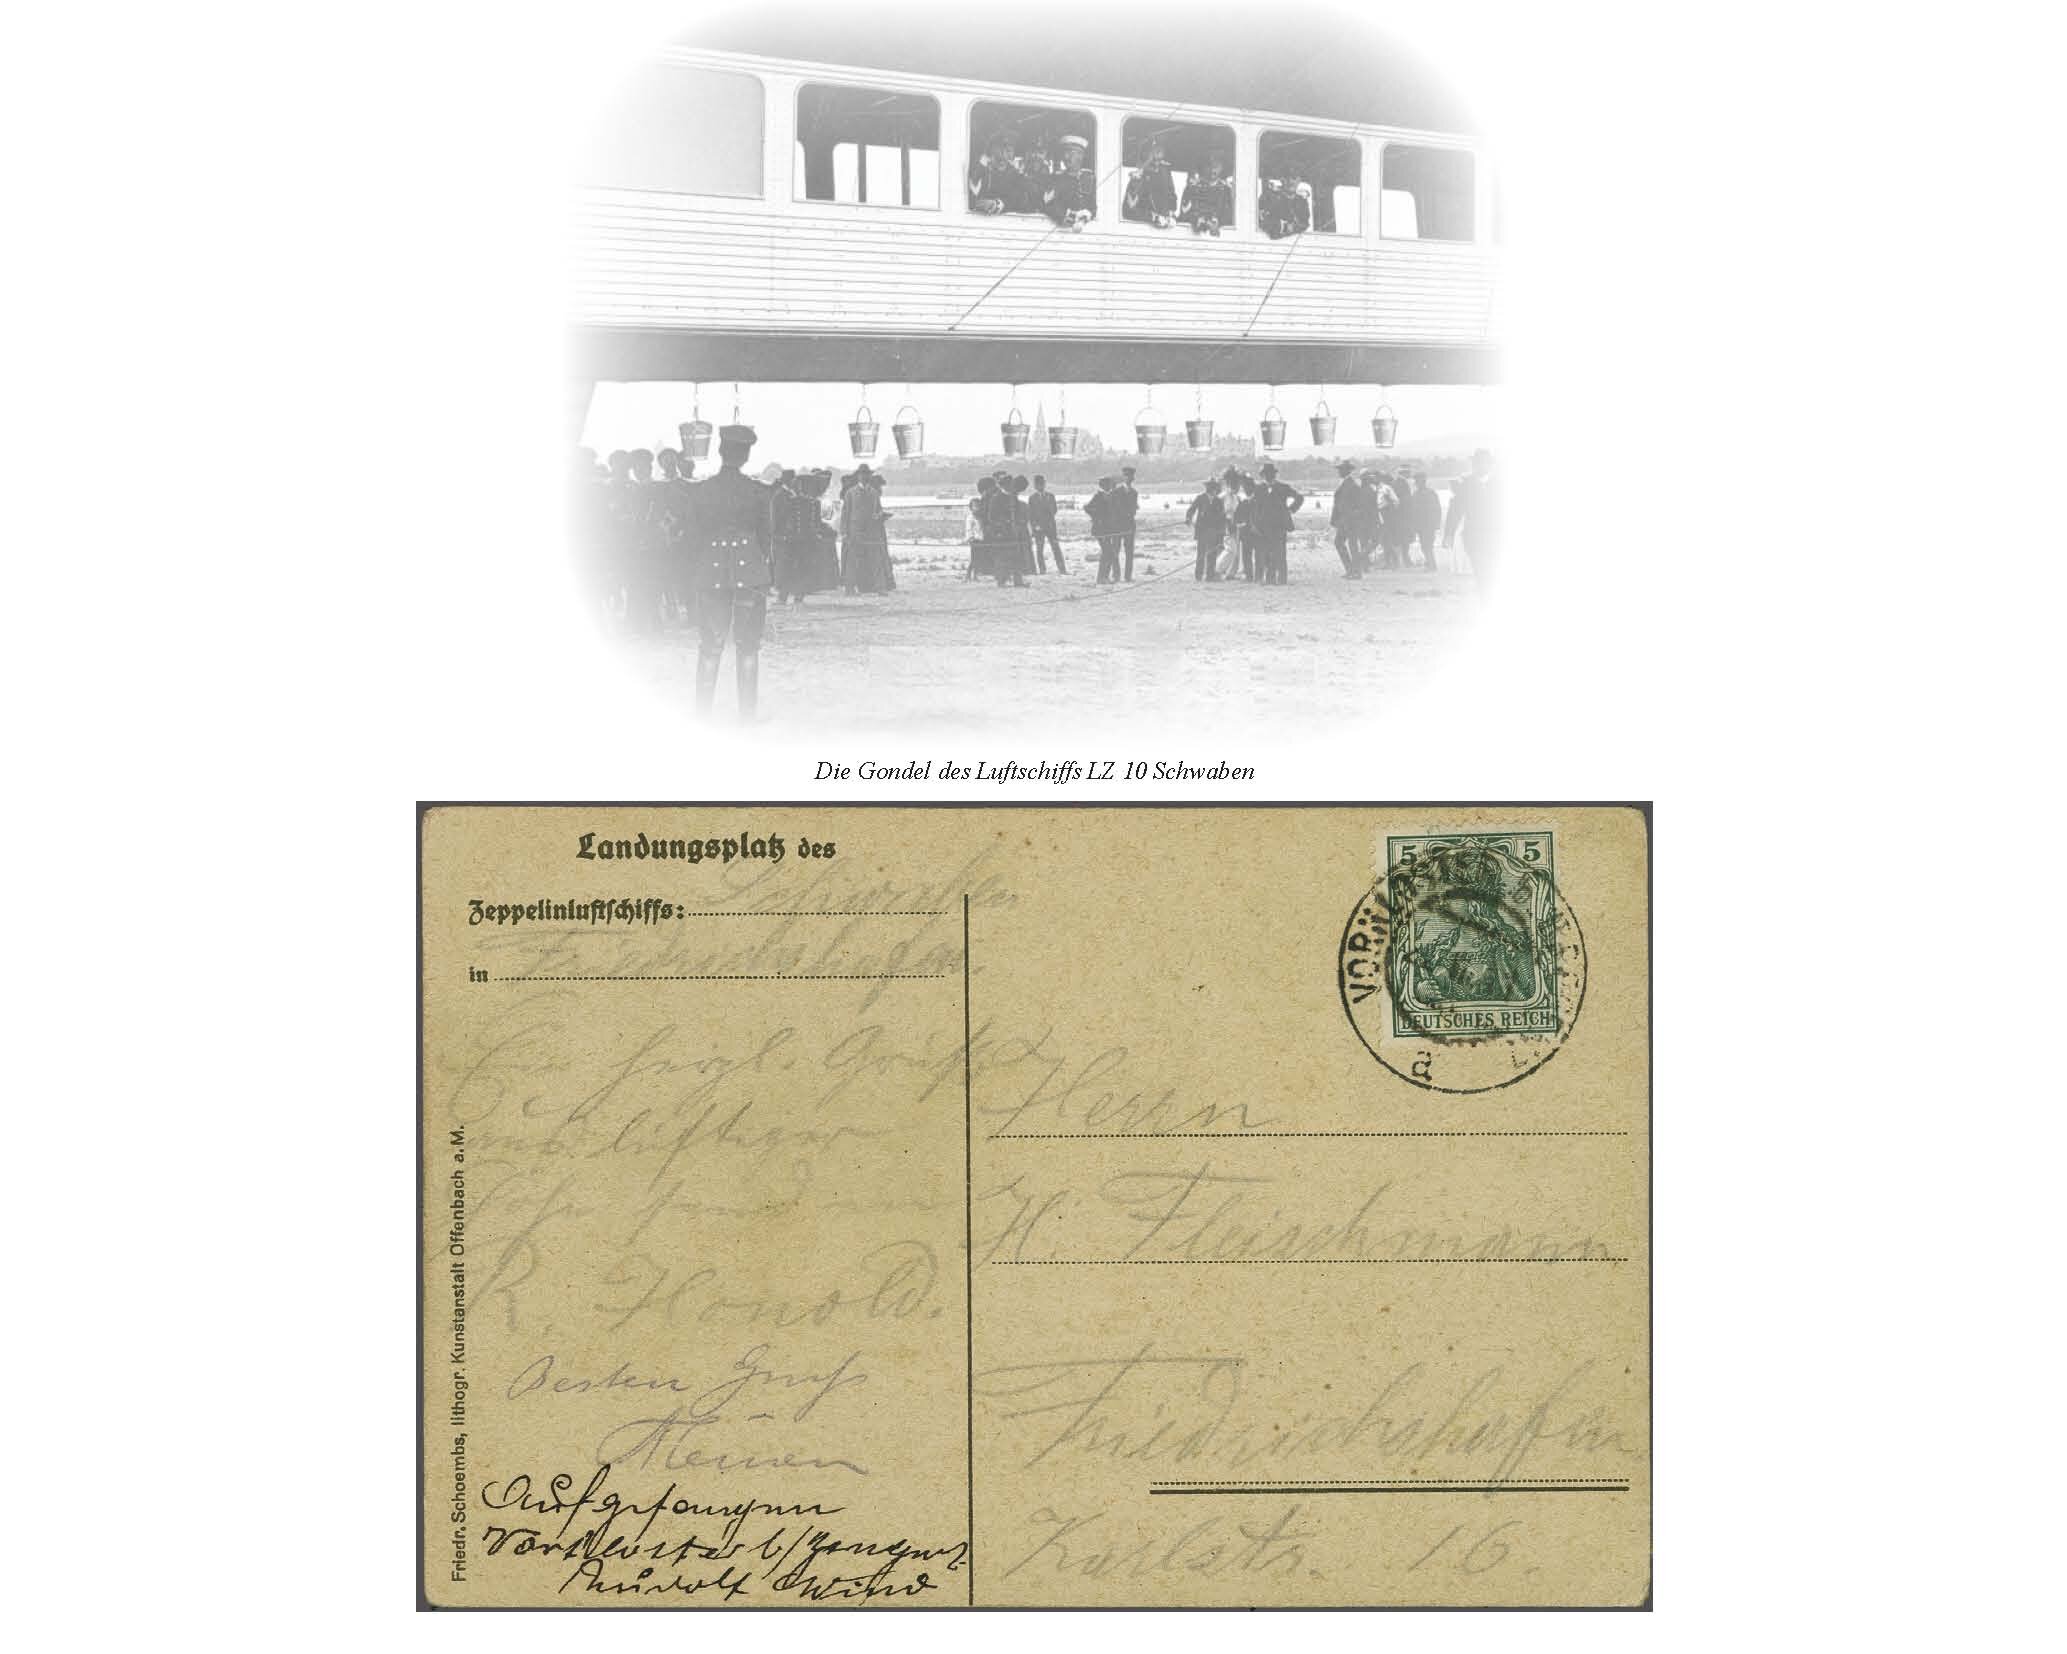 Die Gondel des Luftschiffs LZ 10 Schwaben
Landungsplatz des
Zeppelinluftschiffs: Schwaben
in Friedrichshafen.
Ein herzl. Gruß
aus luftiger
Höhe
R. Honold.
Besten Gruß
Aufgefangen
Vorkloster b/
Rudolf
Friedr. Schoembs, lithogr. Kunstanstalt Offenbach a.M.
5 5
DEUTSCHES REICH
VORKLOSTER
a
Herrn
H. Fleischmann
Friedrichshafen
Karlstr. 16.